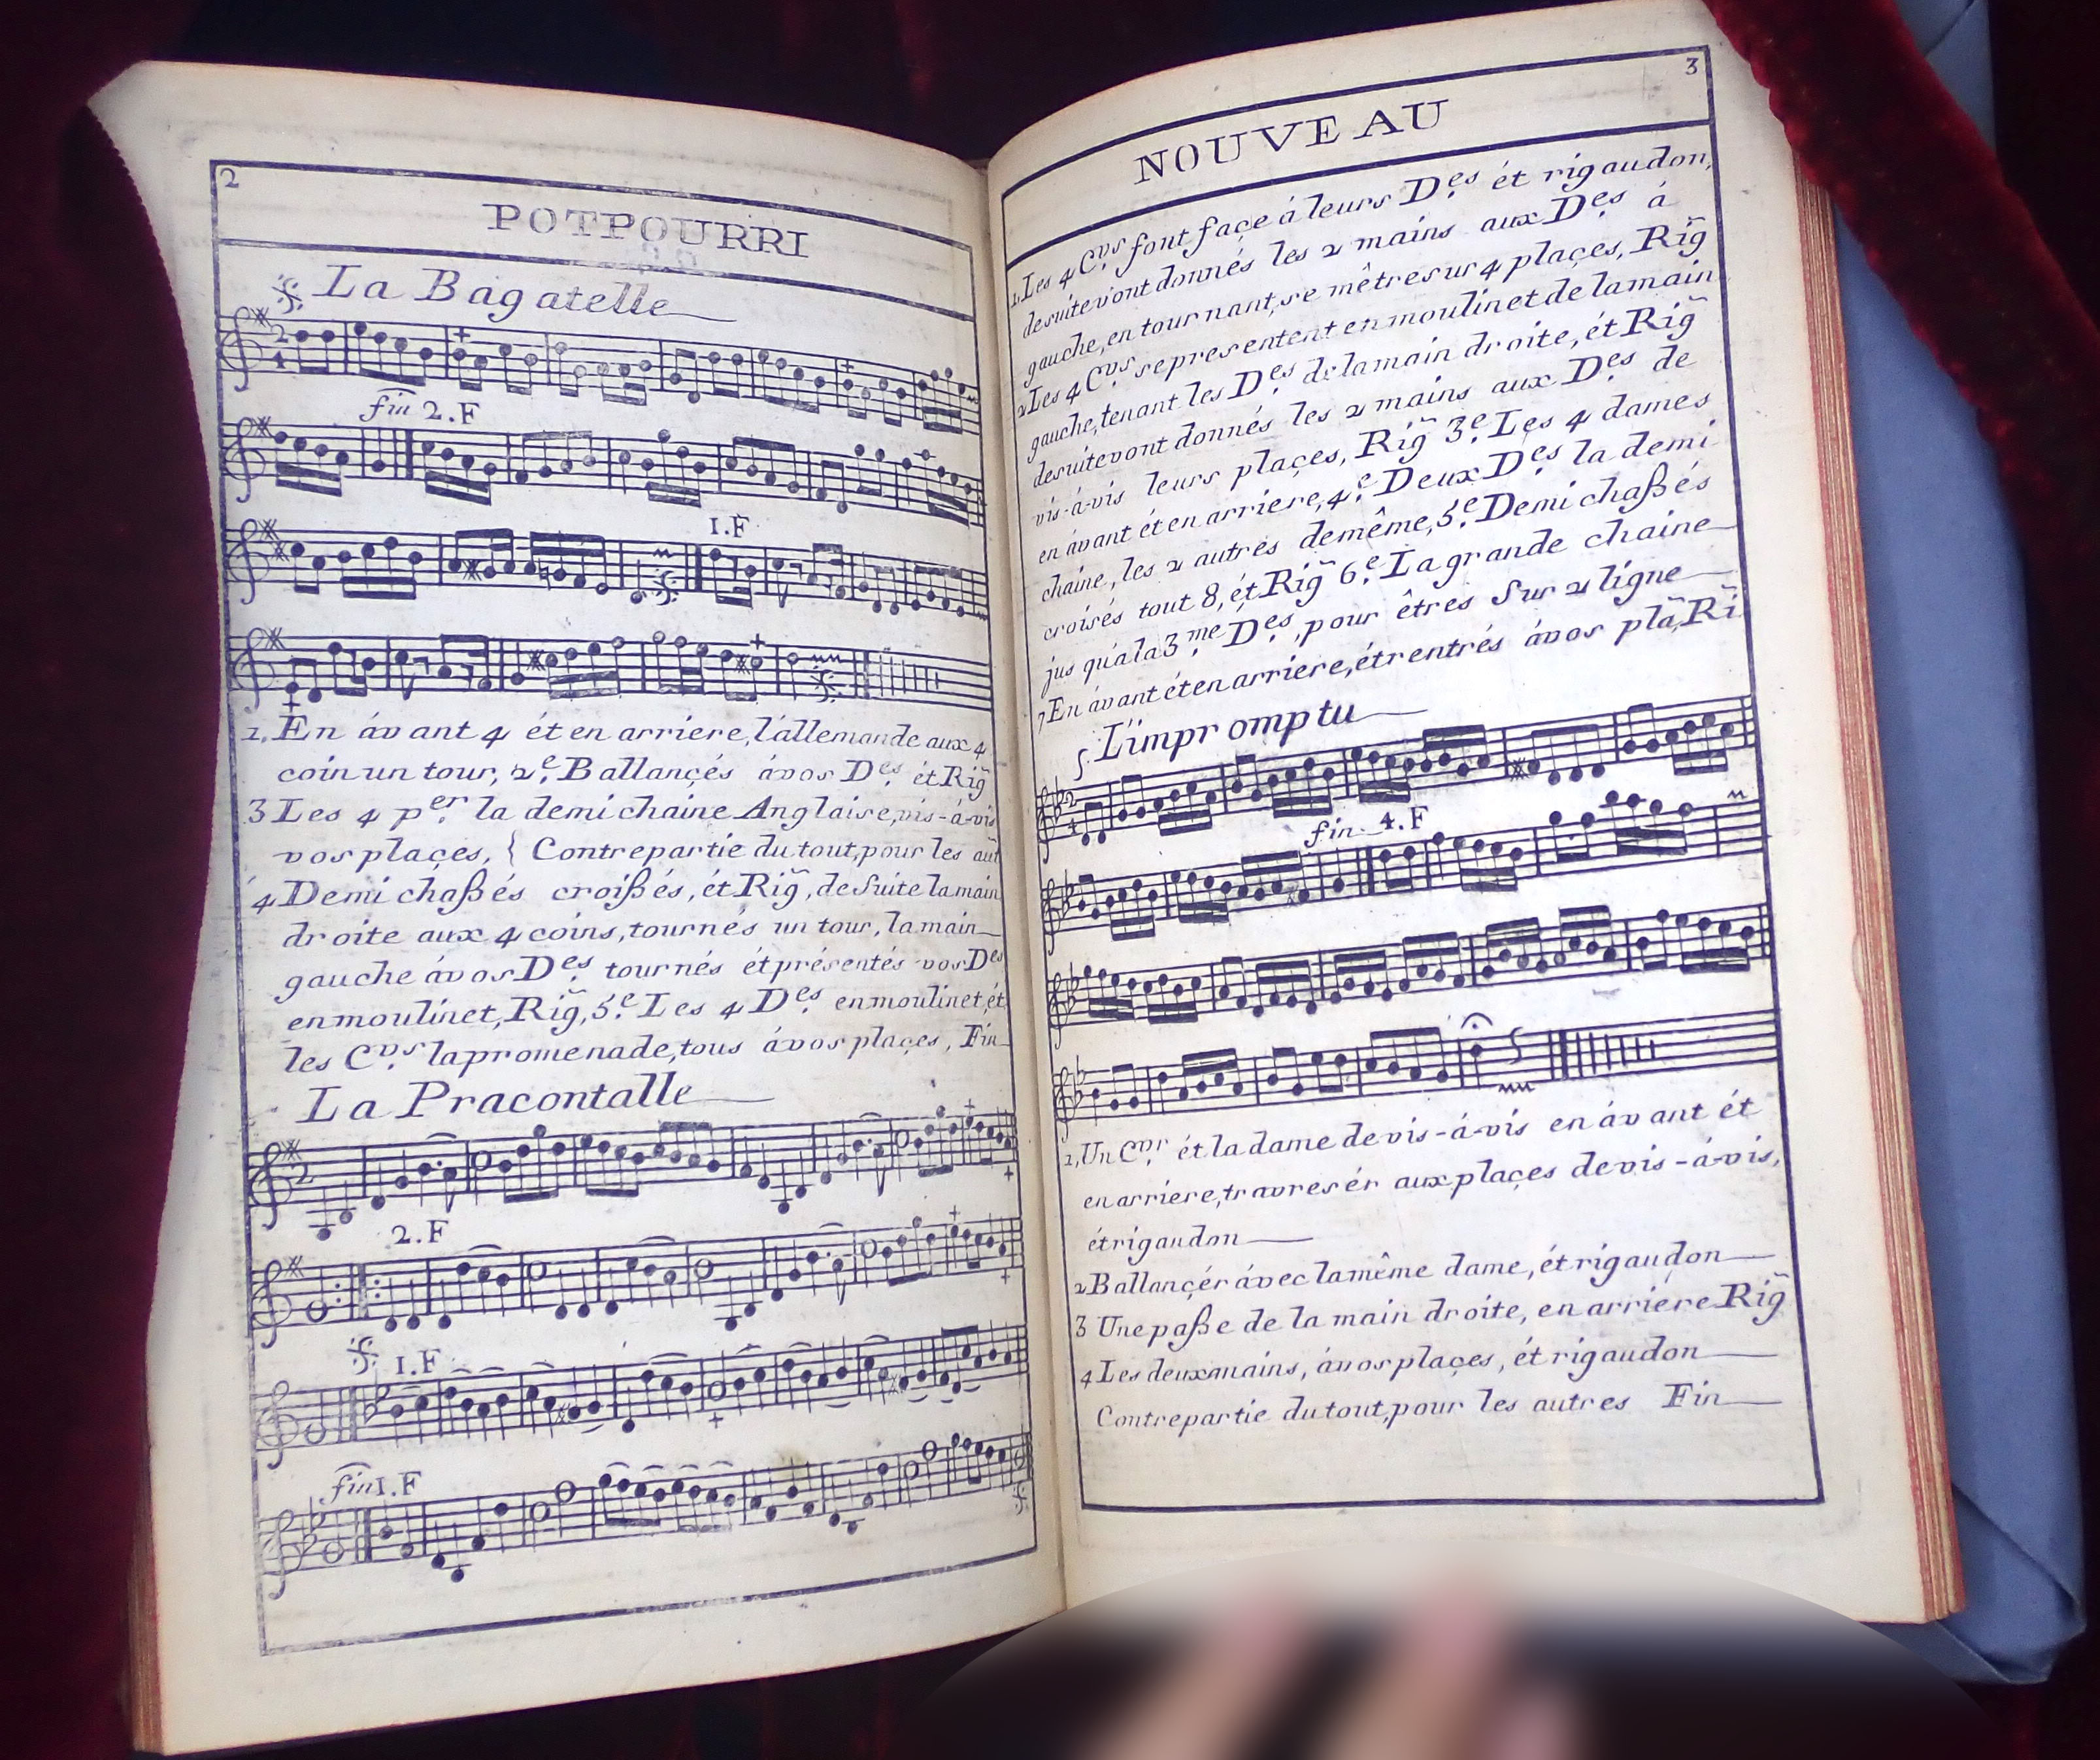 2
POTPOURRI
La Bagatelle
2
4
fin 2.F
1.F
1. En ávant 4 ét en arriere, l'állemande aux 4
coin un tour, 2e. Ballançés ávos Des ét Rig̃
3 Les 4 per. la demi chaine Anglaise, vis-á-vis
vos plaçes, { Contrepartie du tout, pour les aut
4 Demi chaßés croißés, ét Rig̃, de Suite la main
droite aux 4 coins, tournés un tour, la main
gauche ávos Des. tournés ét présentés vos Des
en moulinet, Rig̃, 5e. Les 4 Des. en moulinet, ét
les Cvrs. la promenade, tous ávos plaçes, Fin
La Pracontalle
2
2.F
1.F
fin 1.F
3
NOUVEAU
1. Les 4 Cvrs. font façe á leurs Des. ét rigaudon,
de suite vont donnés les 2 mains aux Des. á
gauche, en tournant, se mêtre sur 4 plaçes, Rig̃
2 Les 4 Cvrs. se presentent en moulinet de la main
gauche, tenant les Des. de la main droite, ét Rig̃
de suite vont donnés les 2 mains aux Des. de
vis-á-vis leurs plaçes, Rig̃ 3e. Les 4 dames
en ávant ét en arriere, 4e. Deux Des. la demi
chaine, les 2 autres de même, 5e. Demi chaßés
croisés tout 8, ét Rig̃ 6e. La grande chaine
jus qu'a la 3me. Des., pour êtres Sur 2 ligne
7 En ávant ét en arriere, ét rentrés ávos plã, Ri
L'impromptu
2
4
fin. 4.F
1. Un Cvr. ét la dame de vis-á-vis en ávant ét
en arriere, travresér aux plaçes de vis-á-vis,
ét rigaudon
2 Ballançér ávec la même dame, ét rigaudon
3 Une paße de la main droite, en arriere Rig̃
4 Les deux mains, ávos plaçes, ét rigaudon
Contrepartie du tout, pour les autres Fin